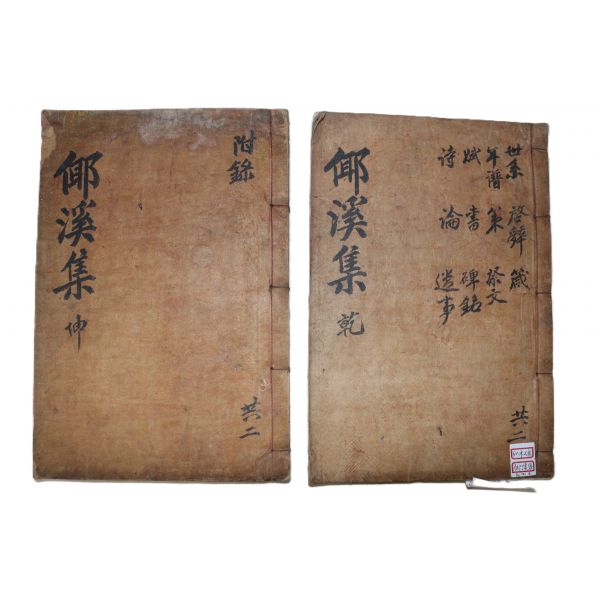 世系 啓辭 箴
年譜 策 祭文
賦 書 碑銘
詩 論 遺事
共二
倻溪集 乾
附錄
共二
倻溪集 坤